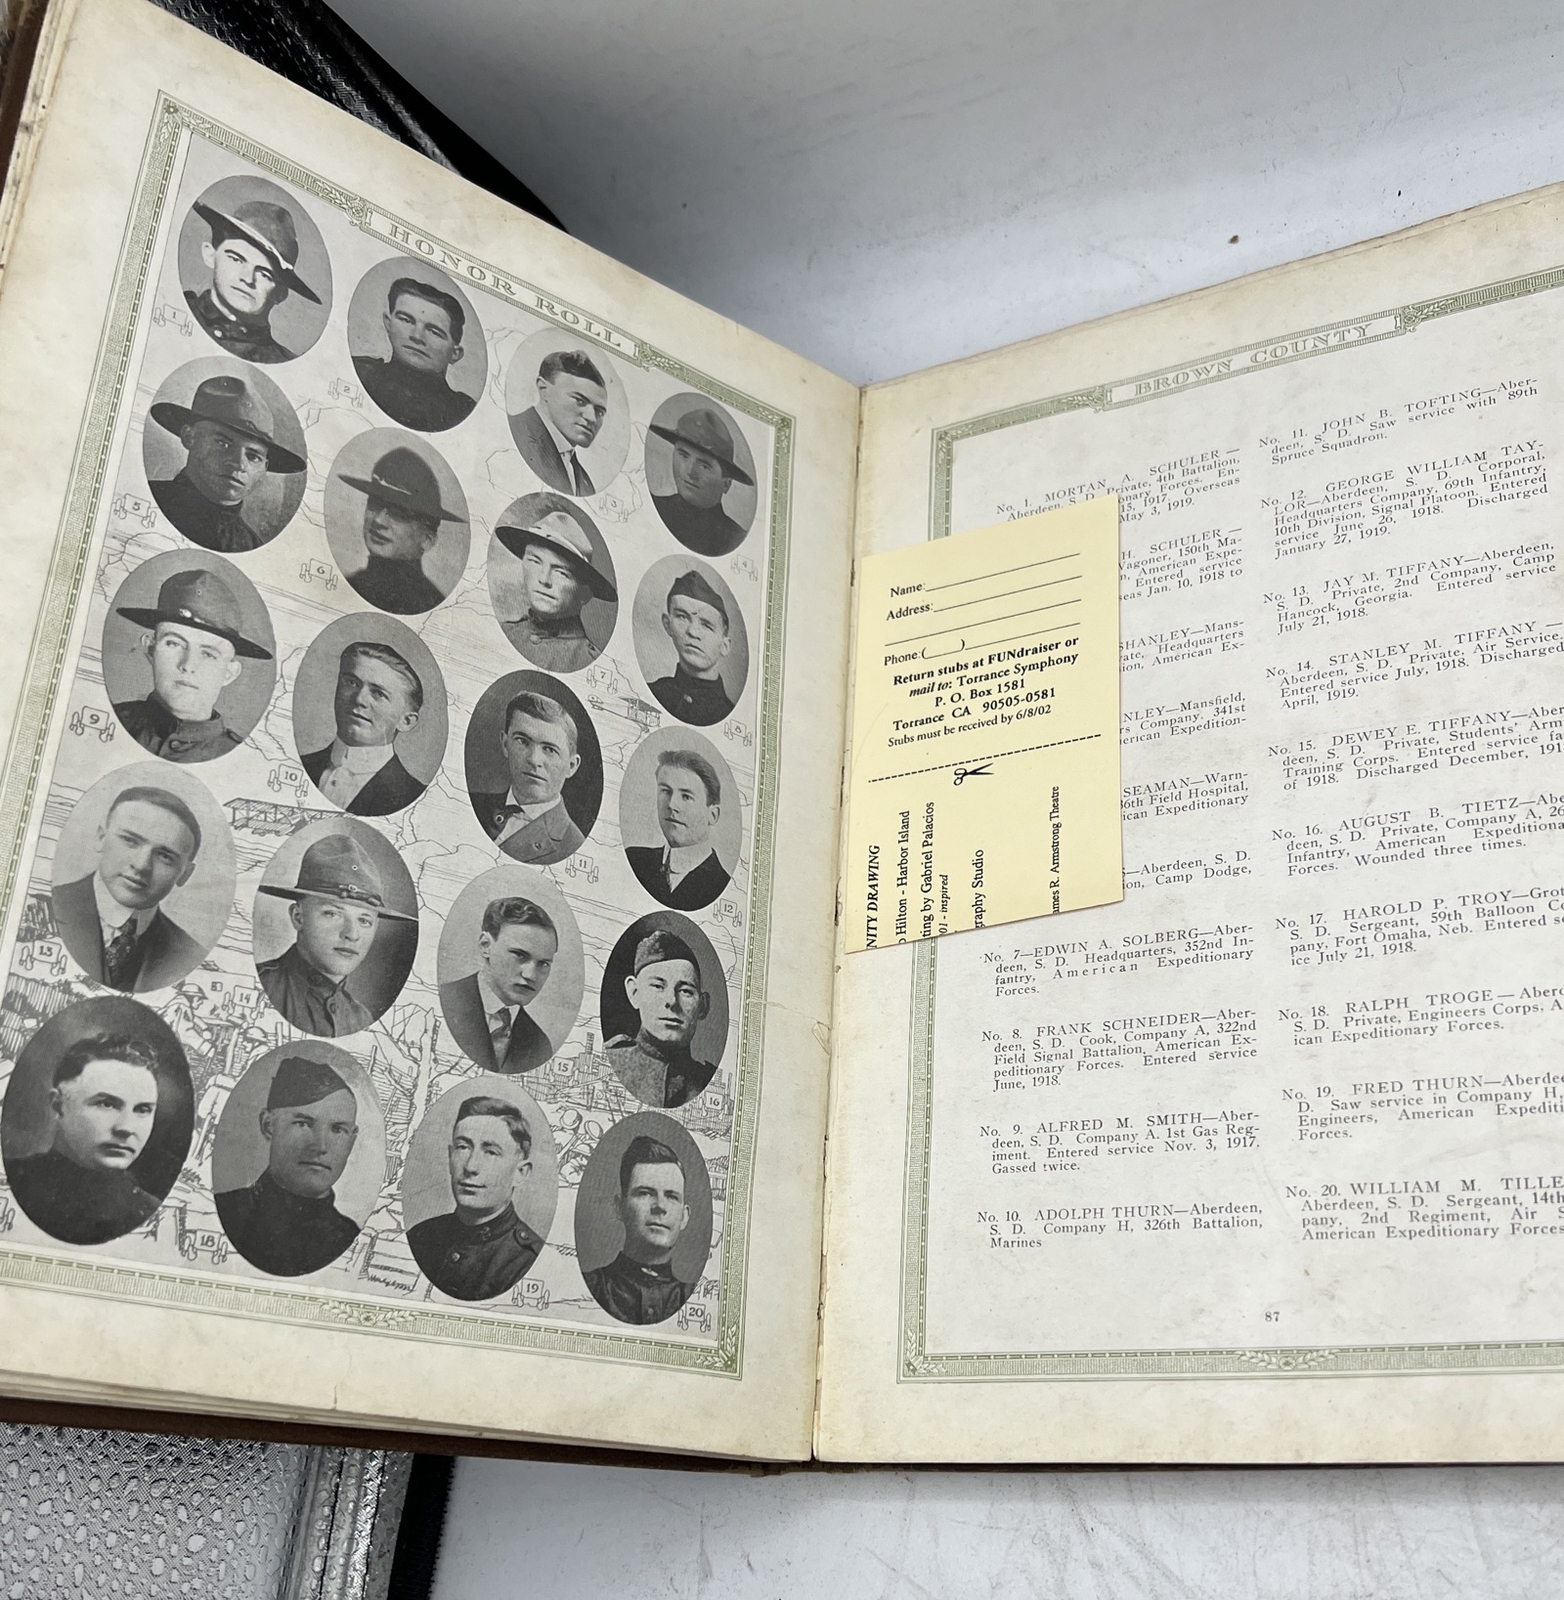 HONOR ROLL
1
2
3
4
5
6
7
8
9
10
11
12
13
14
15
16
18
19
20
BROWN COUNTY
No. 1. MORTAN A. SCHULER —
Aberdeen, S. D. Private, 4th Battalion,
onary Forces. En-
15, 1917. Overseas
May 3, 1919.
H. SCHULER —
Wagoner, 150th Ma-
n, American Expe-
Entered service
seas Jan. 10, 1918 to
SHANLEY—Mans-
ate, Headquarters
ion, American Ex-
NLEY—Mansfield,
rs Company. 341st
merican Expedition-
SEAMAN—Warn-
36th Field Hospital,
ican Expeditionary
—Aberdeen, S. D.
ion, Camp Dodge,
No. 7—EDWIN A. SOLBERG—Aber-
deen, S. D. Headquarters, 352nd In-
fantry, American Expeditionary
Forces.
No. 8. FRANK SCHNEIDER—Aber-
deen, S. D. Cook, Company A, 322nd
Field Signal Battalion, American Ex-
peditionary Forces. Entered service
June, 1918.
No. 9. ALFRED M. SMITH—Aber-
deen, S. D. Company A. 1st Gas Reg-
iment. Entered service Nov. 3, 1917.
Gassed twice.
No. 10. ADOLPH THURN—Aberdeen,
S. D. Company H, 326th Battalion,
Marines
No. 11. JOHN B. TOFTING—Aber-
deen, S. D. Saw service with 89th
Spruce Squadron.
No. 12. GEORGE WILLIAM TAY-
LOR—Aberdeen, S. D. Corporal,
Headquarters Company, 69th Infantry,
10th Division, Signal Platoon. Entered
service June 26, 1918. Discharged
January 27, 1919.
No. 13. JAY M. TIFFANY—Aberdeen,
S. D. Private, 2nd Company, Camp
Hancock, Georgia. Entered service
July 21, 1918.
No. 14. STANLEY M. TIFFANY —
Aberdeen, S. D. Private. Air Service.
Entered service July, 1918. Discharged
April, 1919.
No. 15. DEWEY E. TIFFANY—Aber
deen, S. D. Private, Students' Arm
Training Corps. Entered service fa
of 1918. Discharged December, 191
No. 16. AUGUST B. TIETZ—Abe
deen, S. D. Private, Company A, 26
Infantry, American Expeditiona
Forces. Wounded three times.
No. 17. HAROLD P. TROY—Grot
S. D. Sergeant, 59th Balloon Co
pany, Fort Omaha, Neb. Entered se
ice July 21, 1918.
No. 18. RALPH TROGE — Aberd
S. D. Private, Engineers Corps, A
ican Expeditionary Forces.
No. 19. FRED THURN—Aberdee
D. Saw service in Company H,
Engineers, American Expediti
Forces.
No. 20. WILLIAM M. TILLE
Aberdeen, S. D. Sergeant, 14th
pany, 2nd Regiment, Air S
American Expeditionary Forces
87
Name:
Address:
Phone:( )
Return stubs at FUNdraiser or
mail to: Torrance Symphony
P. O. Box 1581
Torrance CA 90505-0581
Stubs must be received by 6/8/02
NITY DRAWING
Hilton - Harbor Island
ting by Gabriel Palacios
01 - inspired
raphy Studio
ames R. Armstrong Theatre